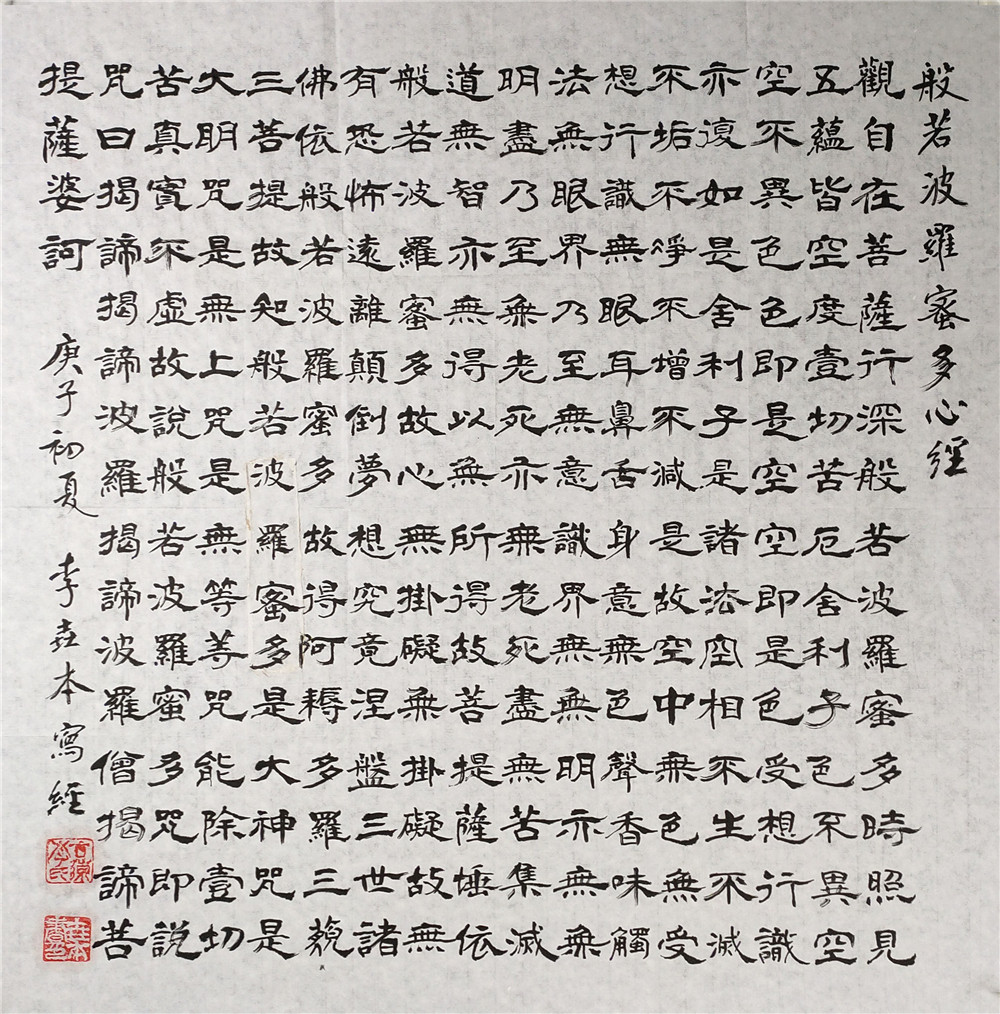 般若波羅蜜多心經
觀自在菩薩行深般若波羅蜜多時照見
五蘊皆空度壹切苦厄舍利子色不異空
空不異色色即是空空即是色受想行識
亦復如是舍利子是諸法空相不生不滅
不垢不淨不增不減是故空中無色無受
想行識無眼耳鼻舌身意無色聲香味觸
法無眼界乃至無意識界無無明亦無無
明盡乃至無老死亦無老死盡無苦集滅
道無智亦無得以無所得故菩提薩埵依
般若波羅蜜多故心無掛礙無掛礙故無
有恐怖遠離顛倒夢想究竟涅盤三世諸
佛依般若波羅蜜多故得阿耨多羅三藐
三菩提故知般若波羅蜜多是大神咒是
大明咒是無上咒是無等等咒能除壹切
苦真實不虛故說般若波羅蜜多咒即說
咒曰揭諦揭諦波羅揭諦波羅僧揭諦菩
提薩婆訶 庚子初夏 李垚本寫經